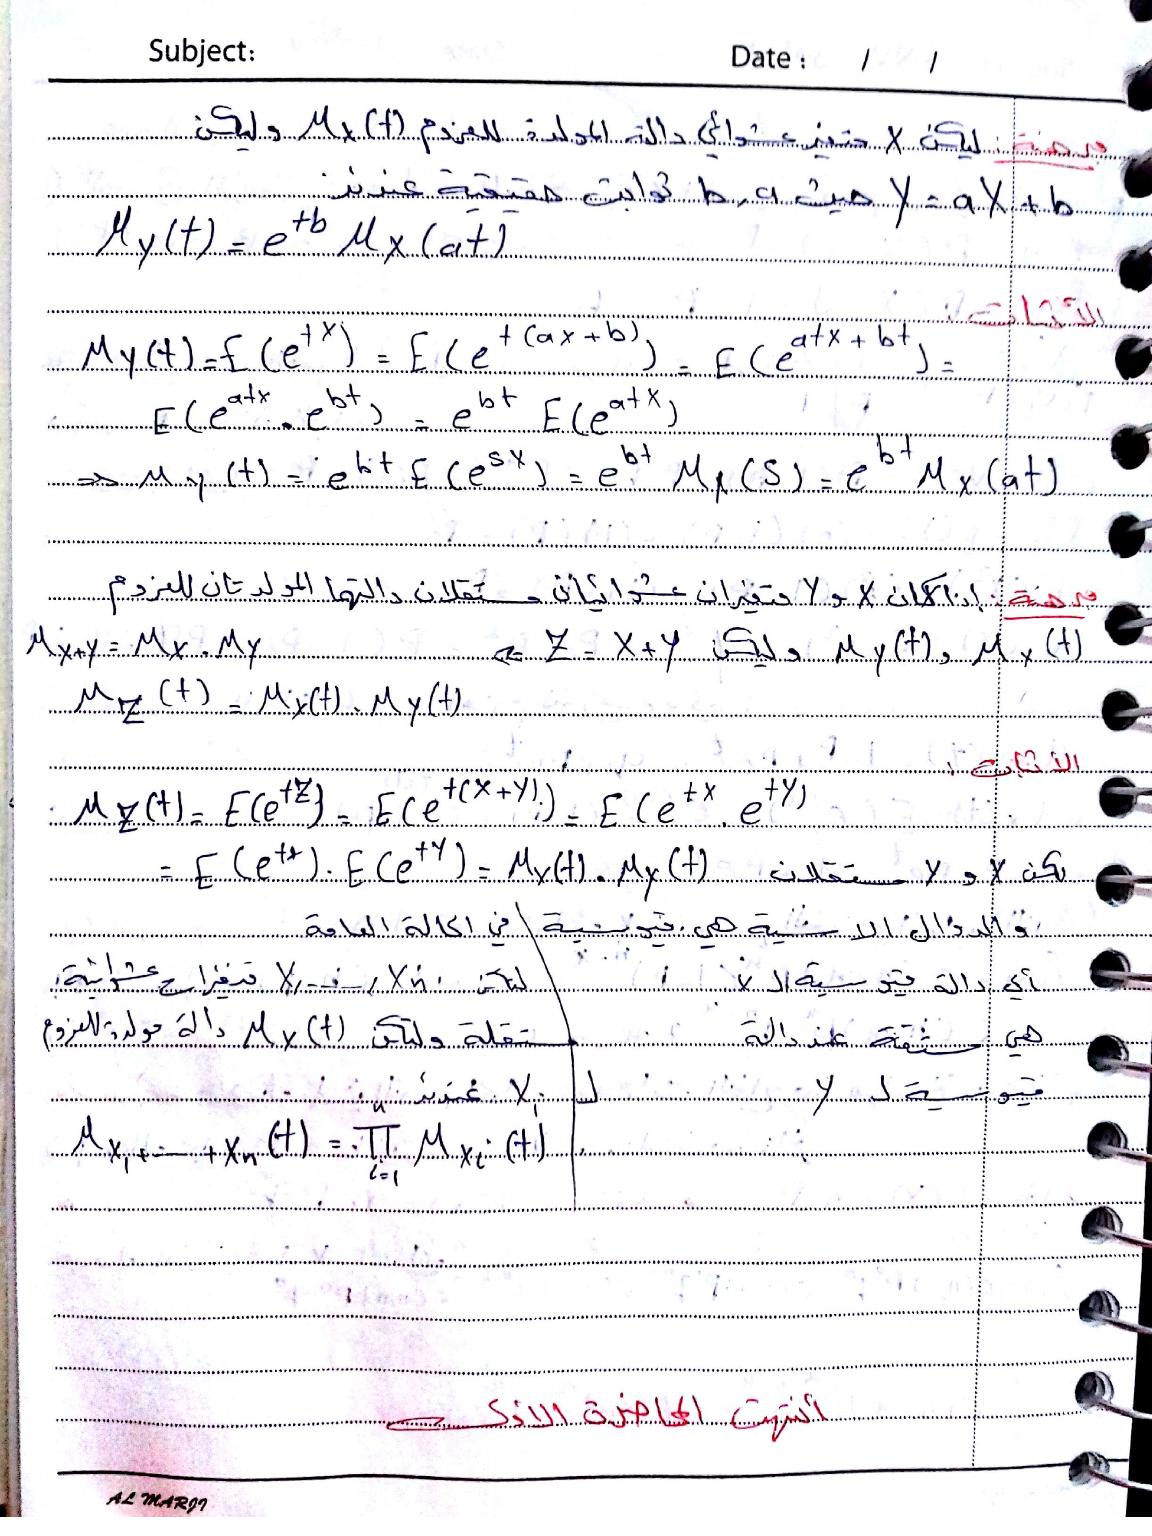 Subject: Date : / /
مبرهنة : ليكن X متغير عشوائي دالته المولدة للعزوم Mx(t) وليكن
Y = aX + b حيث b , a ثوابت حقيقية عندئذ
My(t) = e^{tb} Mx(at)
الاثبات :
My(t) = E(e^{tX}) = E(e^{t(ax+b)}) = E(e^{atx+bt}) =
E(e^{atx} . e^{bt}) = e^{bt} E(e^{atX})
⇒ My(t) = e^{bt} E(e^{sX}) = e^{bt} Mx(s) = e^{bt} Mx(at)
مبرهنة : إذا كان X و Y متغيران عشوائيان مستقلان دالتها المولدتان للعزوم
Mx(t) , My(t) وليكن Z = X+Y ⇐ Mx+y = Mx . My
Mz(t) = Mx(t) . My(t)
الاثبات :
Mz(t) = E(e^{tZ}) = E(e^{t(X+Y)}) = E(e^{tX} . e^{tY})
= E(e^{tx}) . E(e^{tY}) = Mx(t) . My(t) لكن X و Y مستقلان
والدوال الاسية هي
أي دالة
هي مستقلة عن دالة
لـ Y
في الحالة العامة
لتكن X1, ... , Xn متغيرات عشوائية
مستقلة ولتكن Mx(t) دالة مولدة للعزوم
لـ Xi عندئذ
M_{x1+...+xn}(t) = ∏_{i=1}^{n} M_{xi}(t)
انتهت المحاضرة
AL MARJI